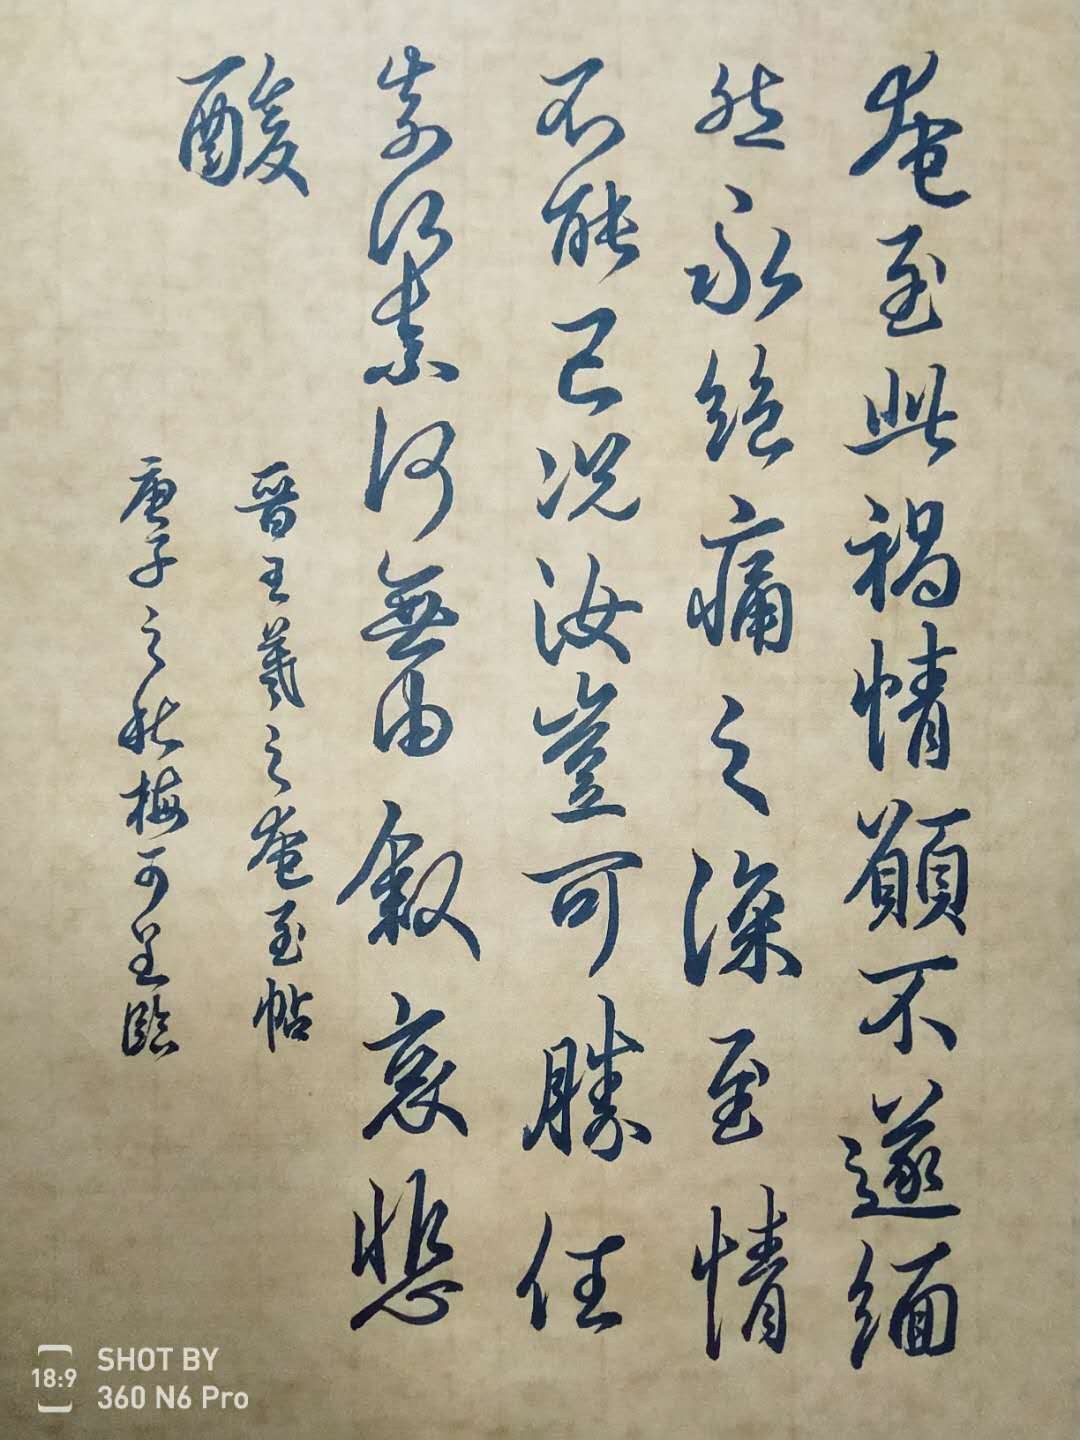 奄至此禍情願不遂緬
然永絕痛之深至情
不能已況汝豈可勝任
奈何奈何無由敘哀悲
酸
晉王羲之奄至帖
庚子之秋梅可呈臨
SHOT BY
18:9
360 N6 Pro